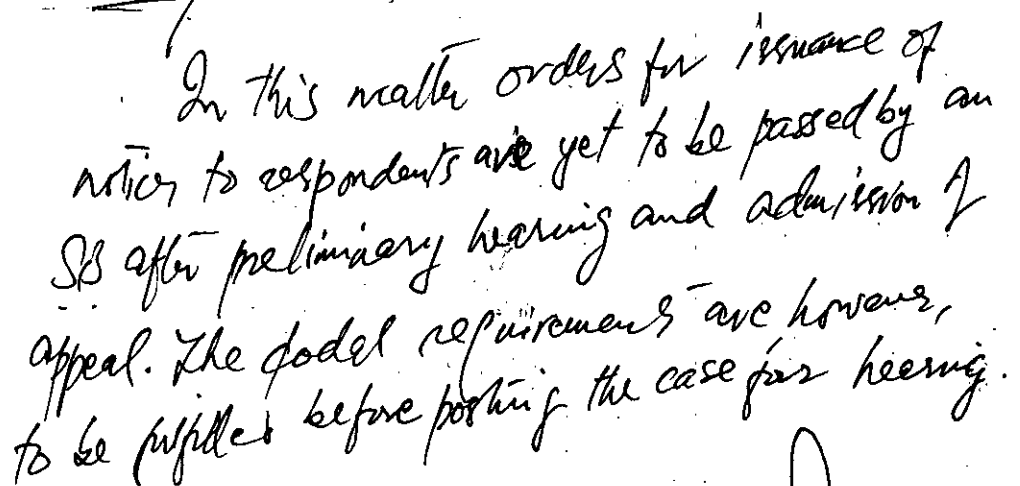 In this matter orders for issuance of
notices to respondents are yet to be passed by an
SB after preliminary hearing and admission of
appeal. The codal requirements are however,
to be fulfilled before posting the case for hearing.